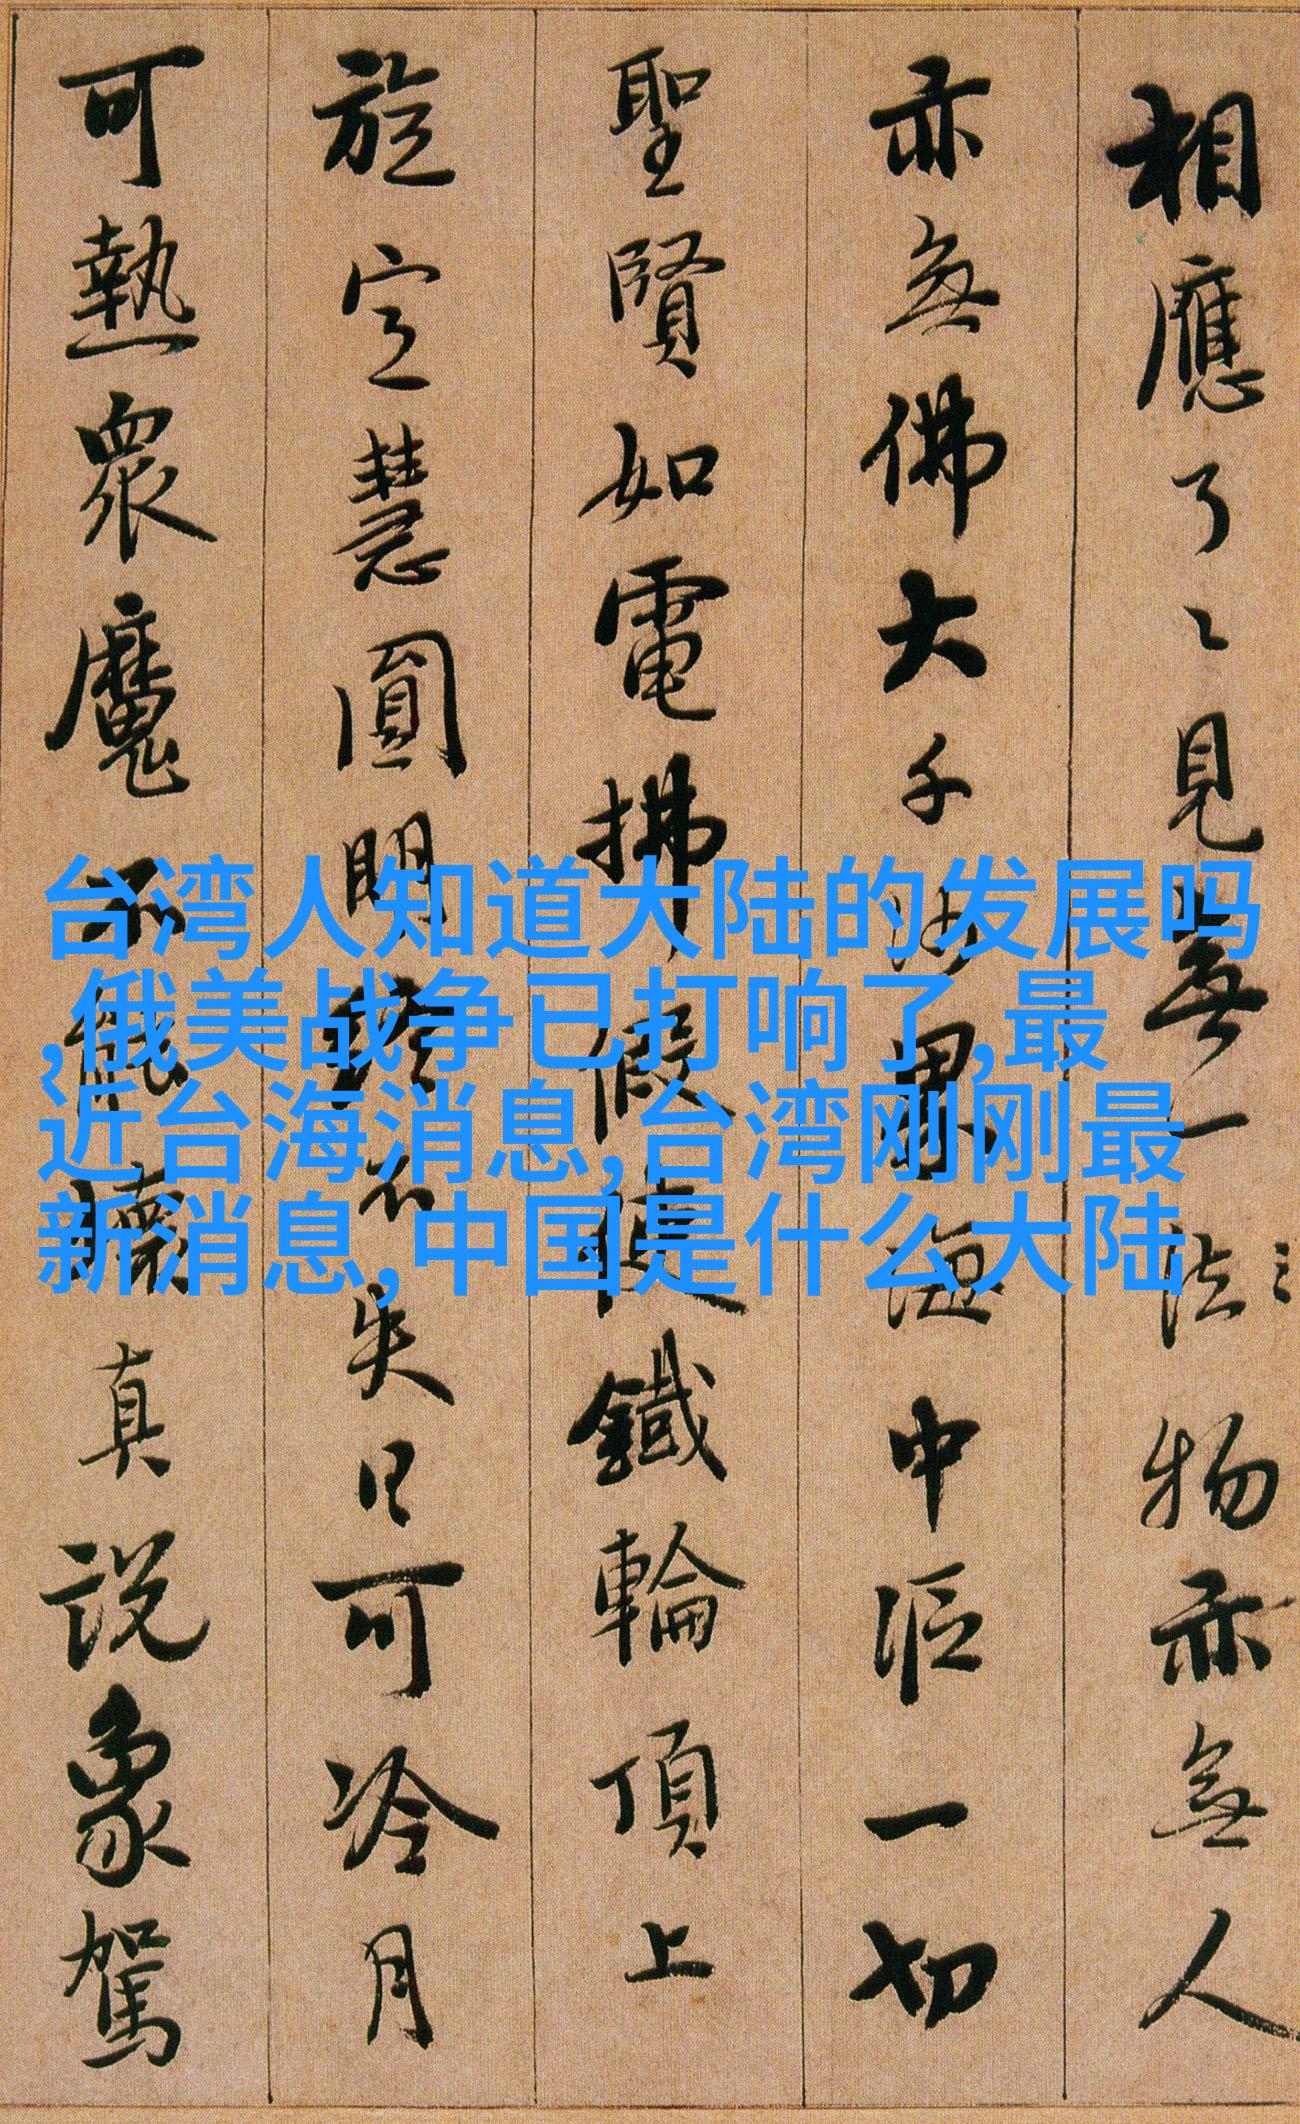 相應了〻見無一法物亦無人
亦無佛大千沙界海中漚一切
聖賢如電拂假使鐵輪頂上
旋定慧圓明終不失日可冷月
可熱眾魔不能壞真說象駕
台湾人知道大陆的发展吗
,俄美战争已打响了,最
近台海消息,台湾刚刚最
新消息,中国是什么大陆